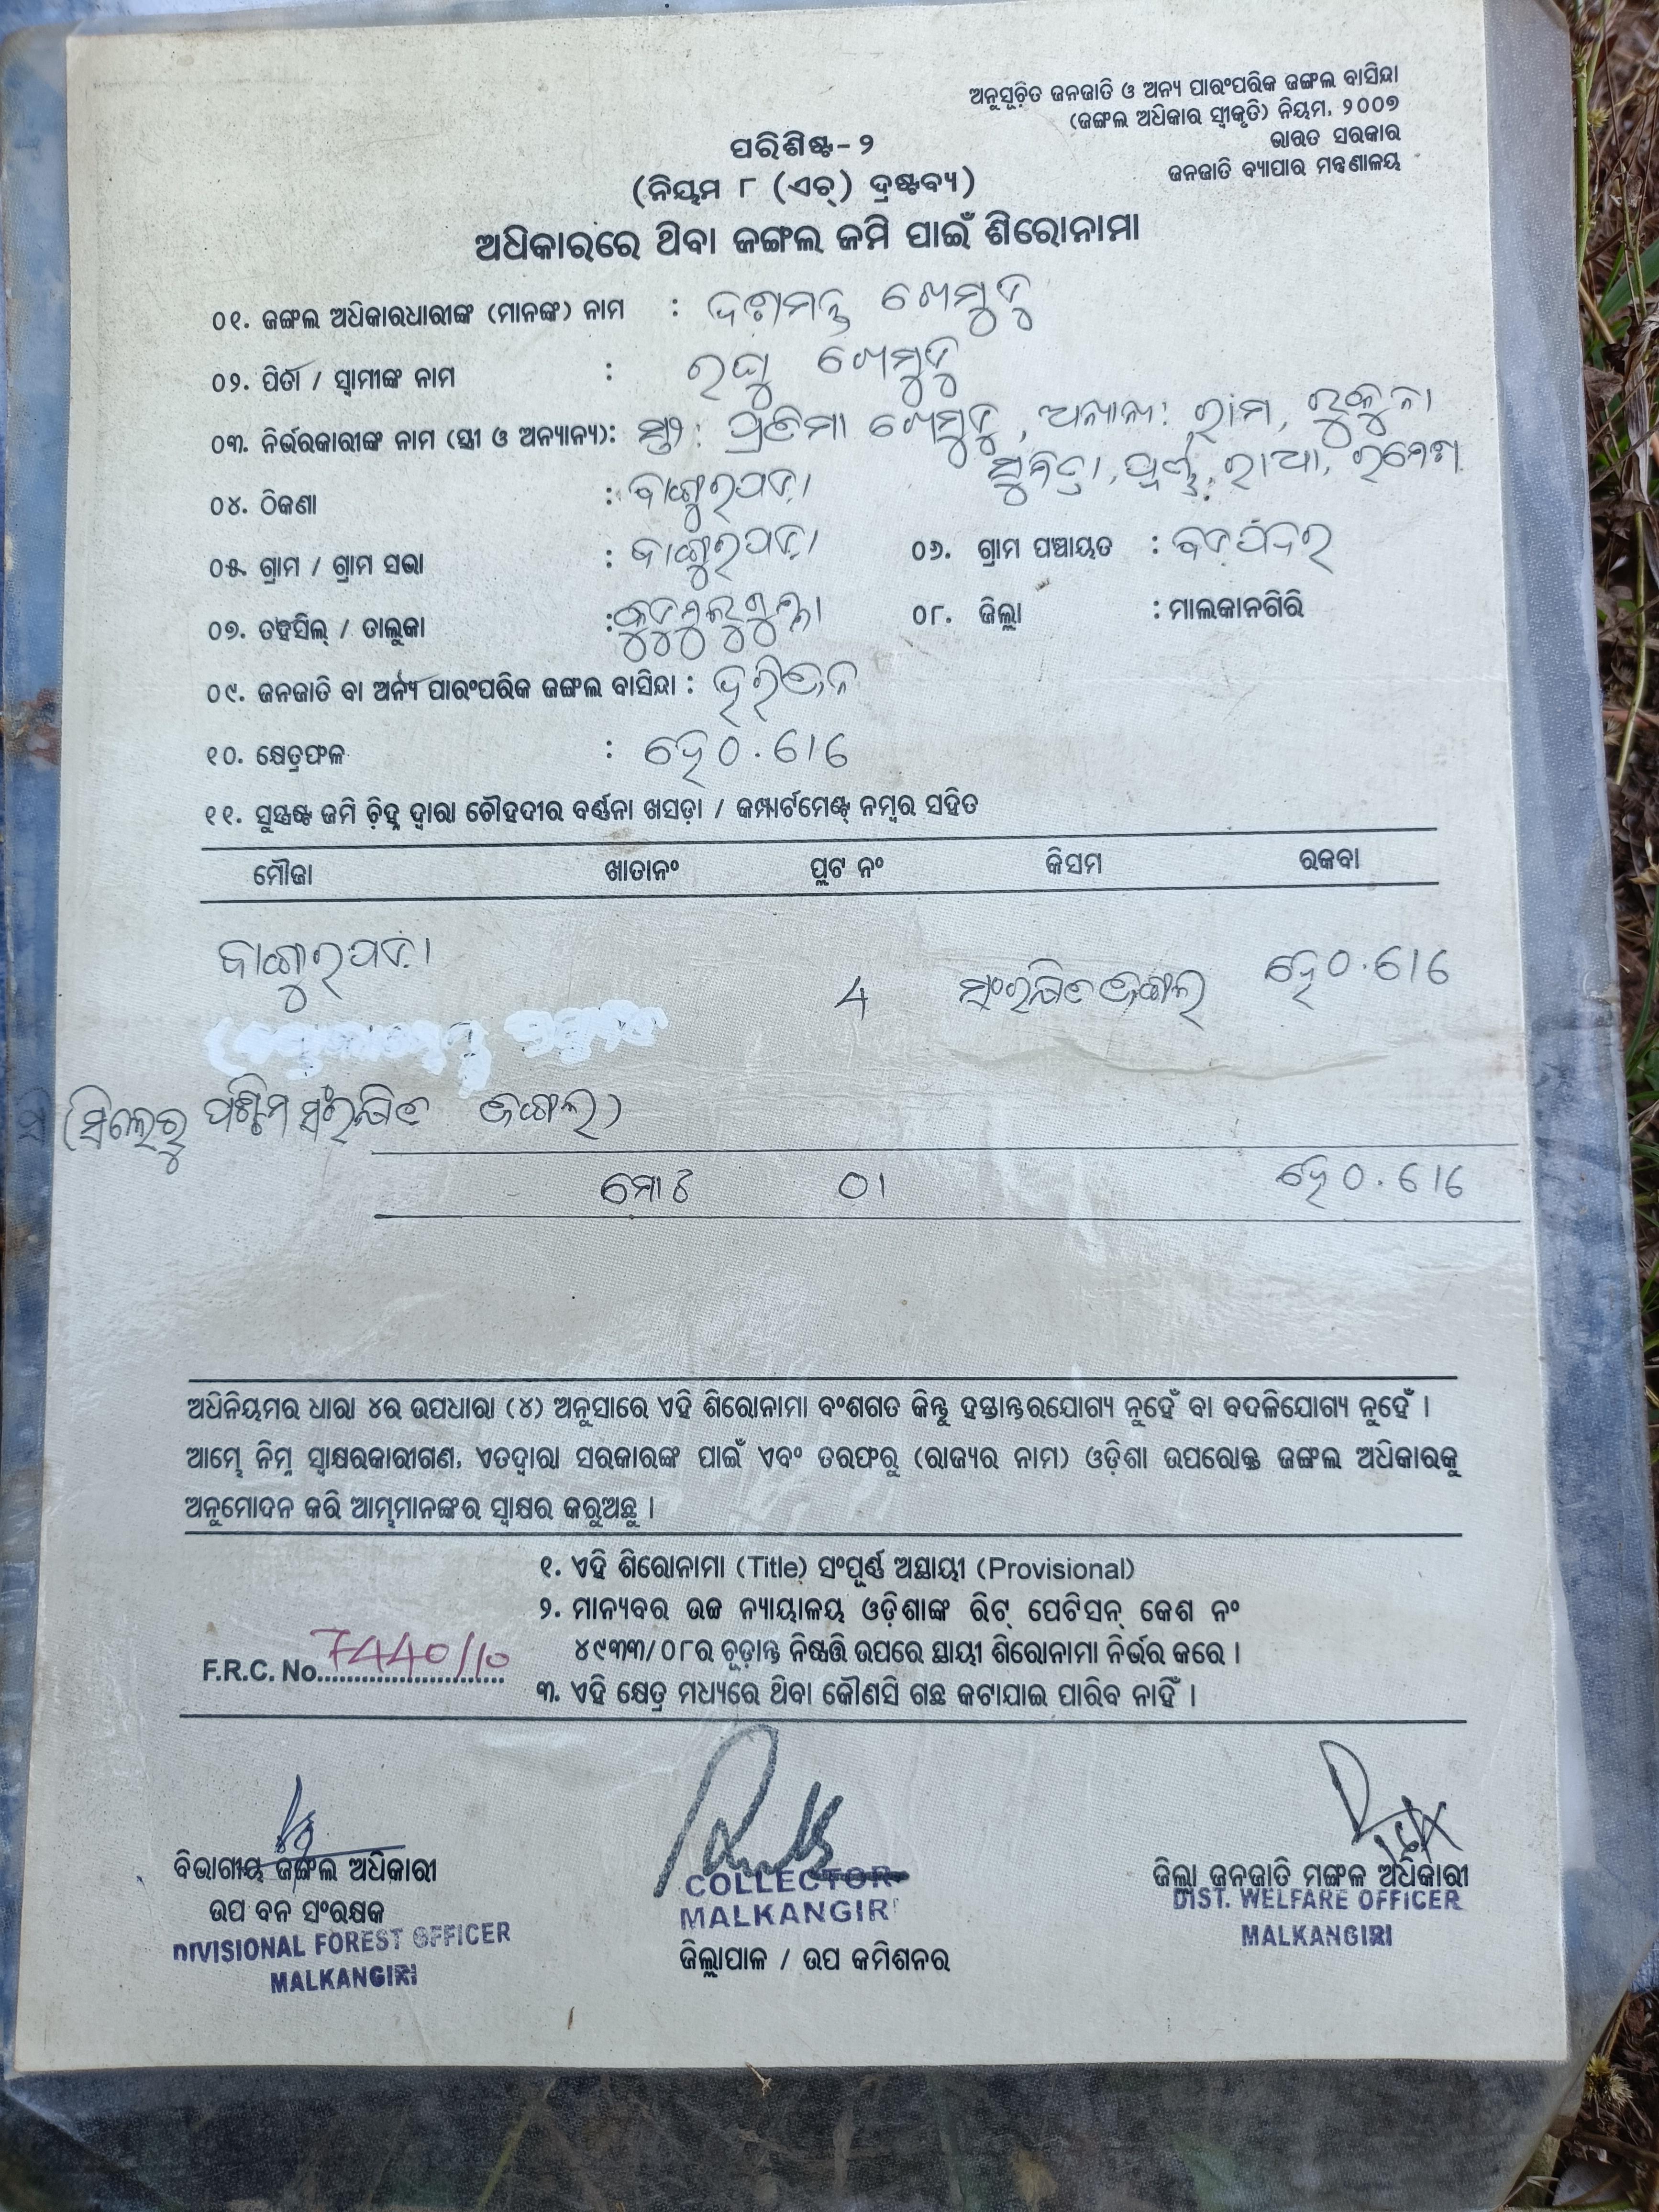 ଅନୁସୂଚିତ ଜନଜାତି ଓ ଅନ୍ୟ ପାରଂପରିକ ଜଙ୍ଗଲ ବାସିନ୍ଦା
(ଜଙ୍ଗଲ ଅଧିକାର ସ୍ୱୀକୃତି) ନିୟମ, ୨୦୦୭
ଭାରତ ସରକାର
ଜନଜାତି ବ୍ୟାପାର ମନ୍ତ୍ରଣାଳୟ
ପରିଶିଷ୍ଟ-୨
(ନିୟମ ୮ (ଏଚ୍) ଦ୍ରଷ୍ଟବ୍ୟ)
ଅଧିକାରରେ ଥିବା ଜଙ୍ଗଲ ଜମି ପାଇଁ ଶିରୋନାମା
୦୧. ଜଙ୍ଗଲ ଅଧିକାରଧାରୀଙ୍କ (ମାନଙ୍କ) ନାମ : ଦଶମନ୍ତ ଖେମୁଡୁ
୦୨. ପିତା / ସ୍ୱାମୀଙ୍କ ନାମ : ରଘୁ ଖେମୁଡୁ
୦୩. ନିର୍ଭରକାରୀଙ୍କ ନାମ (ସ୍ତ୍ରୀ ଓ ଅନ୍ୟାନ୍ୟ): ପ୍ରତିମା ଖେମୁଡୁ, ଅନ୍ୟାନ୍ୟ: ରାମ,
ରାଧା, ରମେଶ
୦୪. ଠିକଣା :
୦୫. ଗ୍ରାମ / ଗ୍ରାମ ସଭା : ୦୬. ଗ୍ରାମ ପଞ୍ଚାୟତ : ବଡପଦର
୦୭. ତହସିଲ୍ / ତାଲୁକା : କୁଡୁମୁଲୁଗୁମ୍ମା ୦୮. ଜିଲ୍ଲା : ମାଲକାନଗିରି
୦୯. ଜନଜାତି ବା ଅନ୍ୟ ପାରଂପରିକ ଜଙ୍ଗଲ ବାସିନ୍ଦା : ହରିଜନ
୧୦. କ୍ଷେତ୍ରଫଳ : ହେ ୦.616
୧୧. ସୁସ୍ପଷ୍ଟ ଜମି ଚିହ୍ନ ଦ୍ୱାରା ଚୌହଦୀର ବର୍ଣ୍ଣନା ଖସଡ଼ା / କମ୍ପାର୍ଟମେଣ୍ଟ୍ ନମ୍ବର ସହିତ
ମୌଜା ଖାତାନଂ ପ୍ଲଟ ନଂ କିସମ ରକବା
4 ସଂରକ୍ଷିତ ଜଙ୍ଗଲ ହେ ୦.616
(ସିଲେରୁ ପଶ୍ଚିମ ସଂରକ୍ଷିତ ଜଙ୍ଗଲ)
ମୋଟ 01 ହେ ୦.616
ଅଧିନିୟମର ଧାରା ୪ର ଉପଧାରା (୪) ଅନୁସାରେ ଏହି ଶିରୋନାମା ବଂଶଗତ କିନ୍ତୁ ହସ୍ତାନ୍ତରଯୋଗ୍ୟ ନୁହେଁ ବା ବଦଳିଯୋଗ୍ୟ ନୁହେଁ ।
ଆମ୍ଭେ ନିମ୍ନ ସ୍ୱାକ୍ଷରକାରୀଗଣ, ଏତଦ୍ୱାରା ସରକାରଙ୍କ ପାଇଁ ଏବଂ ତରଫରୁ (ରାଜ୍ୟର ନାମ) ଓଡ଼ିଶା ଉପରୋକ୍ତ ଜଙ୍ଗଲ ଅଧିକାରକୁ
ଅନୁମୋଦନ କରି ଆମ୍ଭମାନଙ୍କର ସ୍ୱାକ୍ଷର କରୁଅଛୁ ।
୧. ଏହି ଶିରୋନାମା (Title) ସଂପୂର୍ଣ୍ଣ ଅସ୍ଥାୟୀ (Provisional)
୨. ମାନ୍ୟବର ଉଚ୍ଚ ନ୍ୟାୟାଳୟ ଓଡ଼ିଶାଙ୍କ ରିଟ୍ ପେଟିସନ୍ କେଶ ନଂ
୪୯୩୩/୦୮ର ଚୂଡ଼ାନ୍ତ ନିଷ୍ପତ୍ତି ଉପରେ ସ୍ଥାୟୀ ଶିରୋନାମା ନିର୍ଭର କରେ ।
F.R.C. No. 7440/10
୩. ଏହି କ୍ଷେତ୍ର ମଧ୍ୟରେ ଥିବା କୌଣସି ଗଛ କଟାଯାଇ ପାରିବ ନାହିଁ ।
ବିଭାଗୀୟ ଜଙ୍ଗଲ ଅଧିକାରୀ
ଉପ ବନ ସଂରକ୍ଷକ
DIVISIONAL FOREST OFFICER
MALKANGIRI
COLLECTOR
MALKANGIRI
ଜିଲ୍ଲାପାଳ / ଉପ କମିଶନର
ଜିଲ୍ଲା ଜନଜାତି ମଙ୍ଗଳ ଅଧିକାରୀ
DIST. WELFARE OFFICER
MALKANGIRI